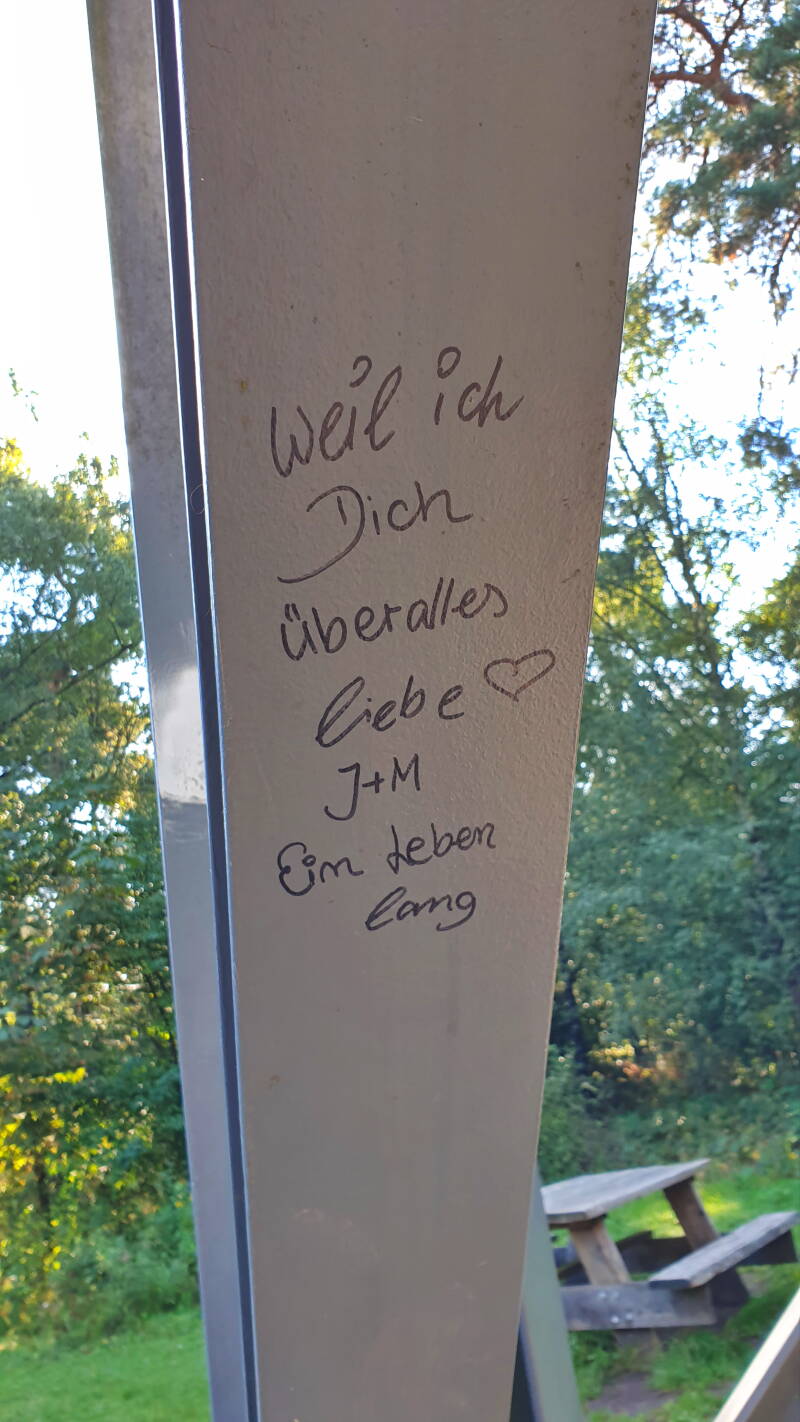 Weil ich
Dich
überalles
liebe ♡
J+M
Ein Leben
lang